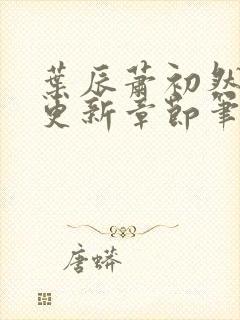 葉辰蕭初然
更新章節筆
唐蟒